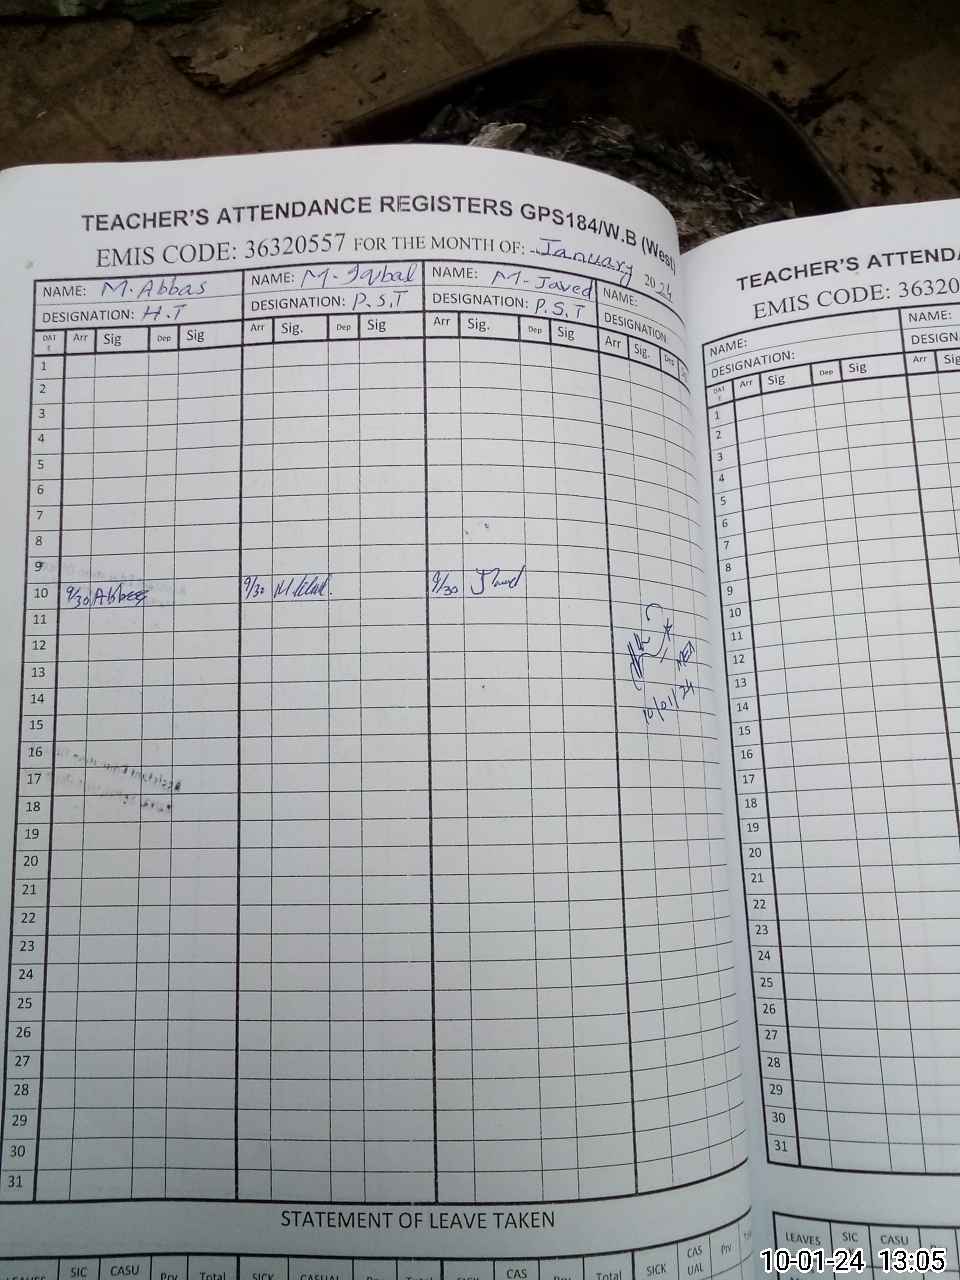 TEACHER'S ATTENDANCE REGISTERS GPS184/W.B (West)
EMIS CODE: 36320557 FOR THE MONTH OF: January 2024
NAME: M. Abbas NAME: M-Iqbal NAME: M-Javed NAME:
DESIGNATION: H.T DESIGNATION: P.S.T DESIGNATION: P.S.T DESIGNATION
DATE Arr Sig Dep Sig Arr Sig. Dep Sig Arr Sig. Dep Sig Arr Sig. Dep
1
2
3
4
5
6
7
8
9
10 9/30 Abbas 9/30 9/30 Javed
11
12
13
14
15
16
17
18
19
20
21
22
23
24
25
26
27
28
29
30
31
AEO
10/01/24
STATEMENT OF LEAVE TAKEN
SIC CASU Prv Total SICK CASUAL Prv Total SICK CAS Total SICK CAS UAL Prv
TEACHER'S ATTENDA
EMIS CODE: 36320
NAME: NAME:
DESIGNATION: DESIGN
DATE Arr Sig Dep Sig Arr Sig
1
2
3
4
5
6
7
8
9
10
11
12
13
14
15
16
17
18
19
20
21
22
23
24
25
26
27
28
29
30
31
LEAVES SIC CASU
10-01-24 13:05